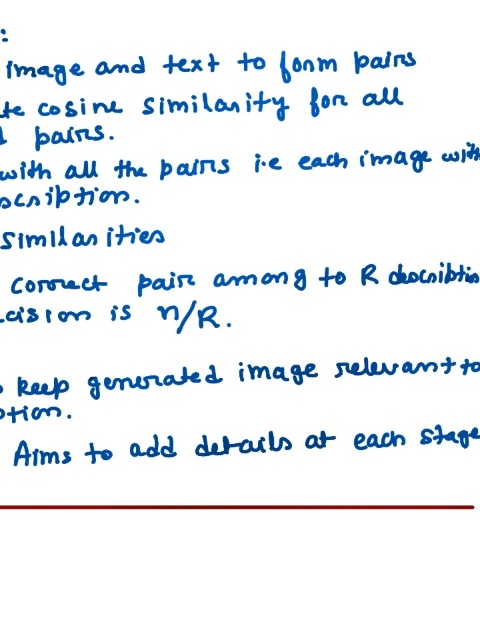 :
image and text to form pairs
te cosine similarity for all
d pairs.
with all the pairs i.e each image with
scription.
similarities
correct pair among to R descriptio
cision is r/R.
o keep generated image relevant to
ption.
Aims to add details at each stage